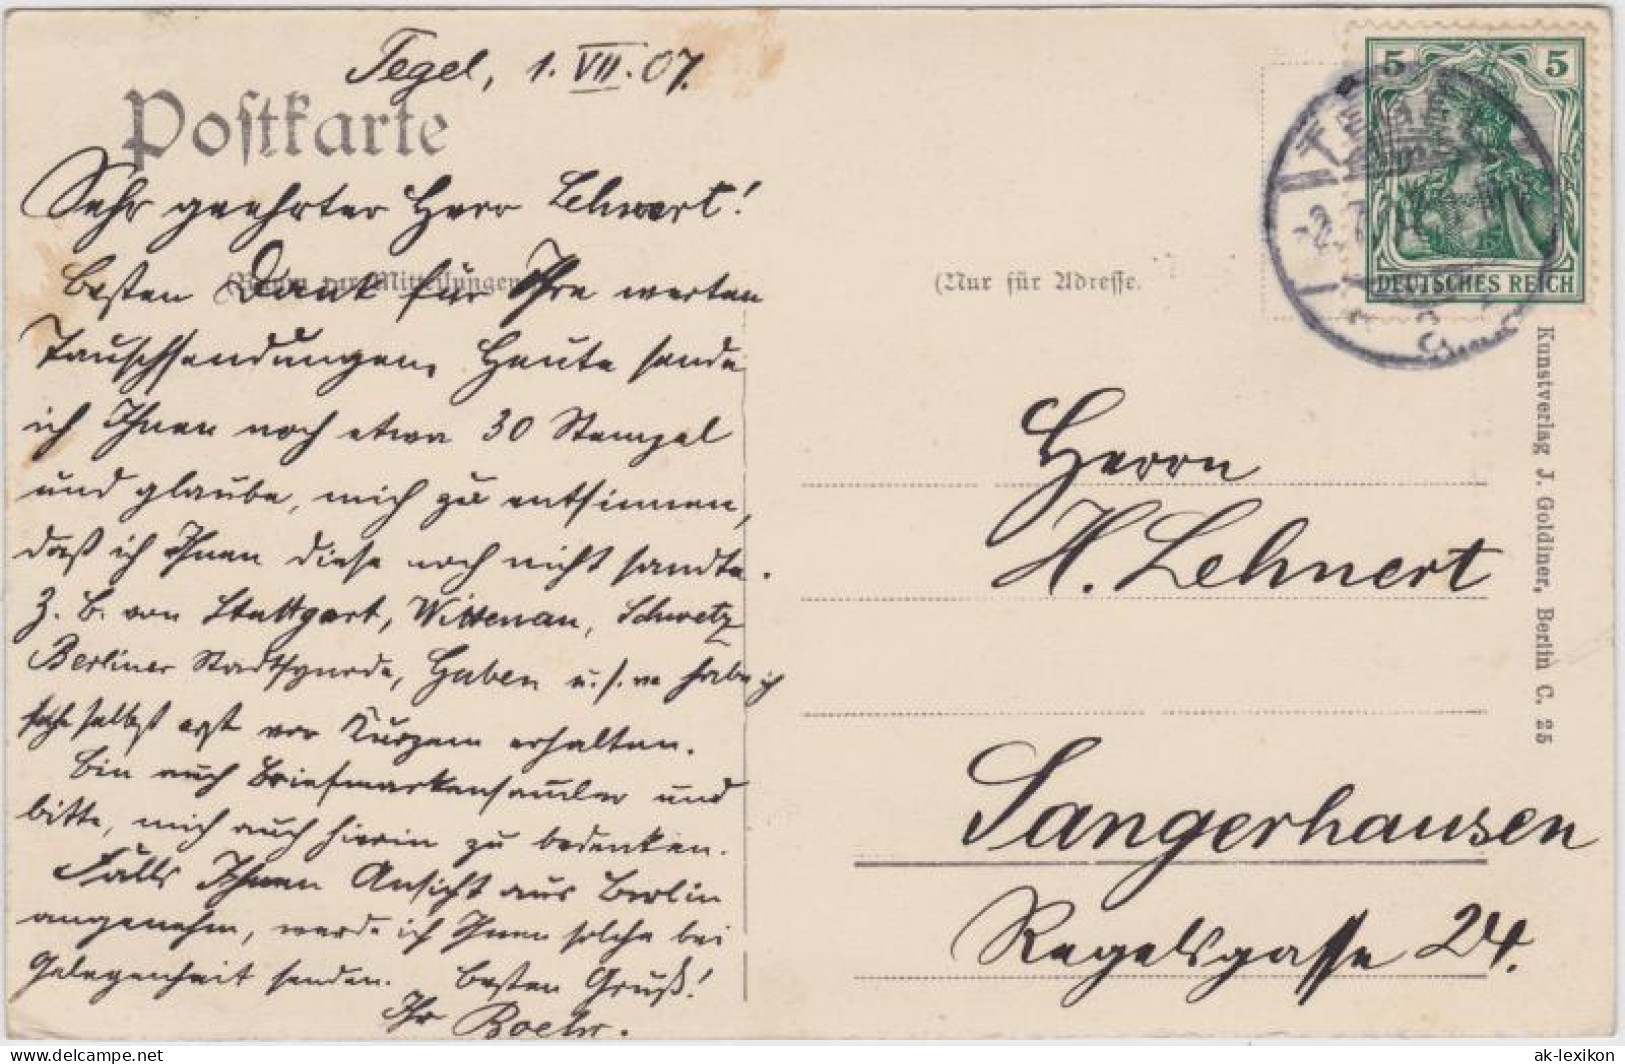 Tegel, 1. VII. 07.
Postkarte
Sehr geehrter Herr Lehnert!
Besten Dank für Ihre werten
Tauschsendungen. Heute sende
ich Ihnen noch etwa 30 Stempel
und glaube, mich zu entsinnen,
daß ich Ihnen diese noch nicht sandte.
Z. B. von Stuttgart, Wittenau, Schwetz
Berliner Stadtsynode, Guben u. s. w habe ich
selbst erst vor Kurzem erhalten.
Bin auch Briefmarkensammler und
bitte, mich auch hierin zu bedenken.
Falls Ihnen Ansicht aus Berlin
angenehm, werde ich Ihnen solche bei
Gelegenheit senden. Besten Gruß!
Ihr Boehr.
(Raum zu Mitteilungen
(Nur für Adresse.
5 5
DEUTSCHES REICH
TEGEL
Herrn
H. Lehnert
Sangerhausen
Kunstverlag J. Goldiner, Berlin C. 25
delcampe.net
ak-lexikon